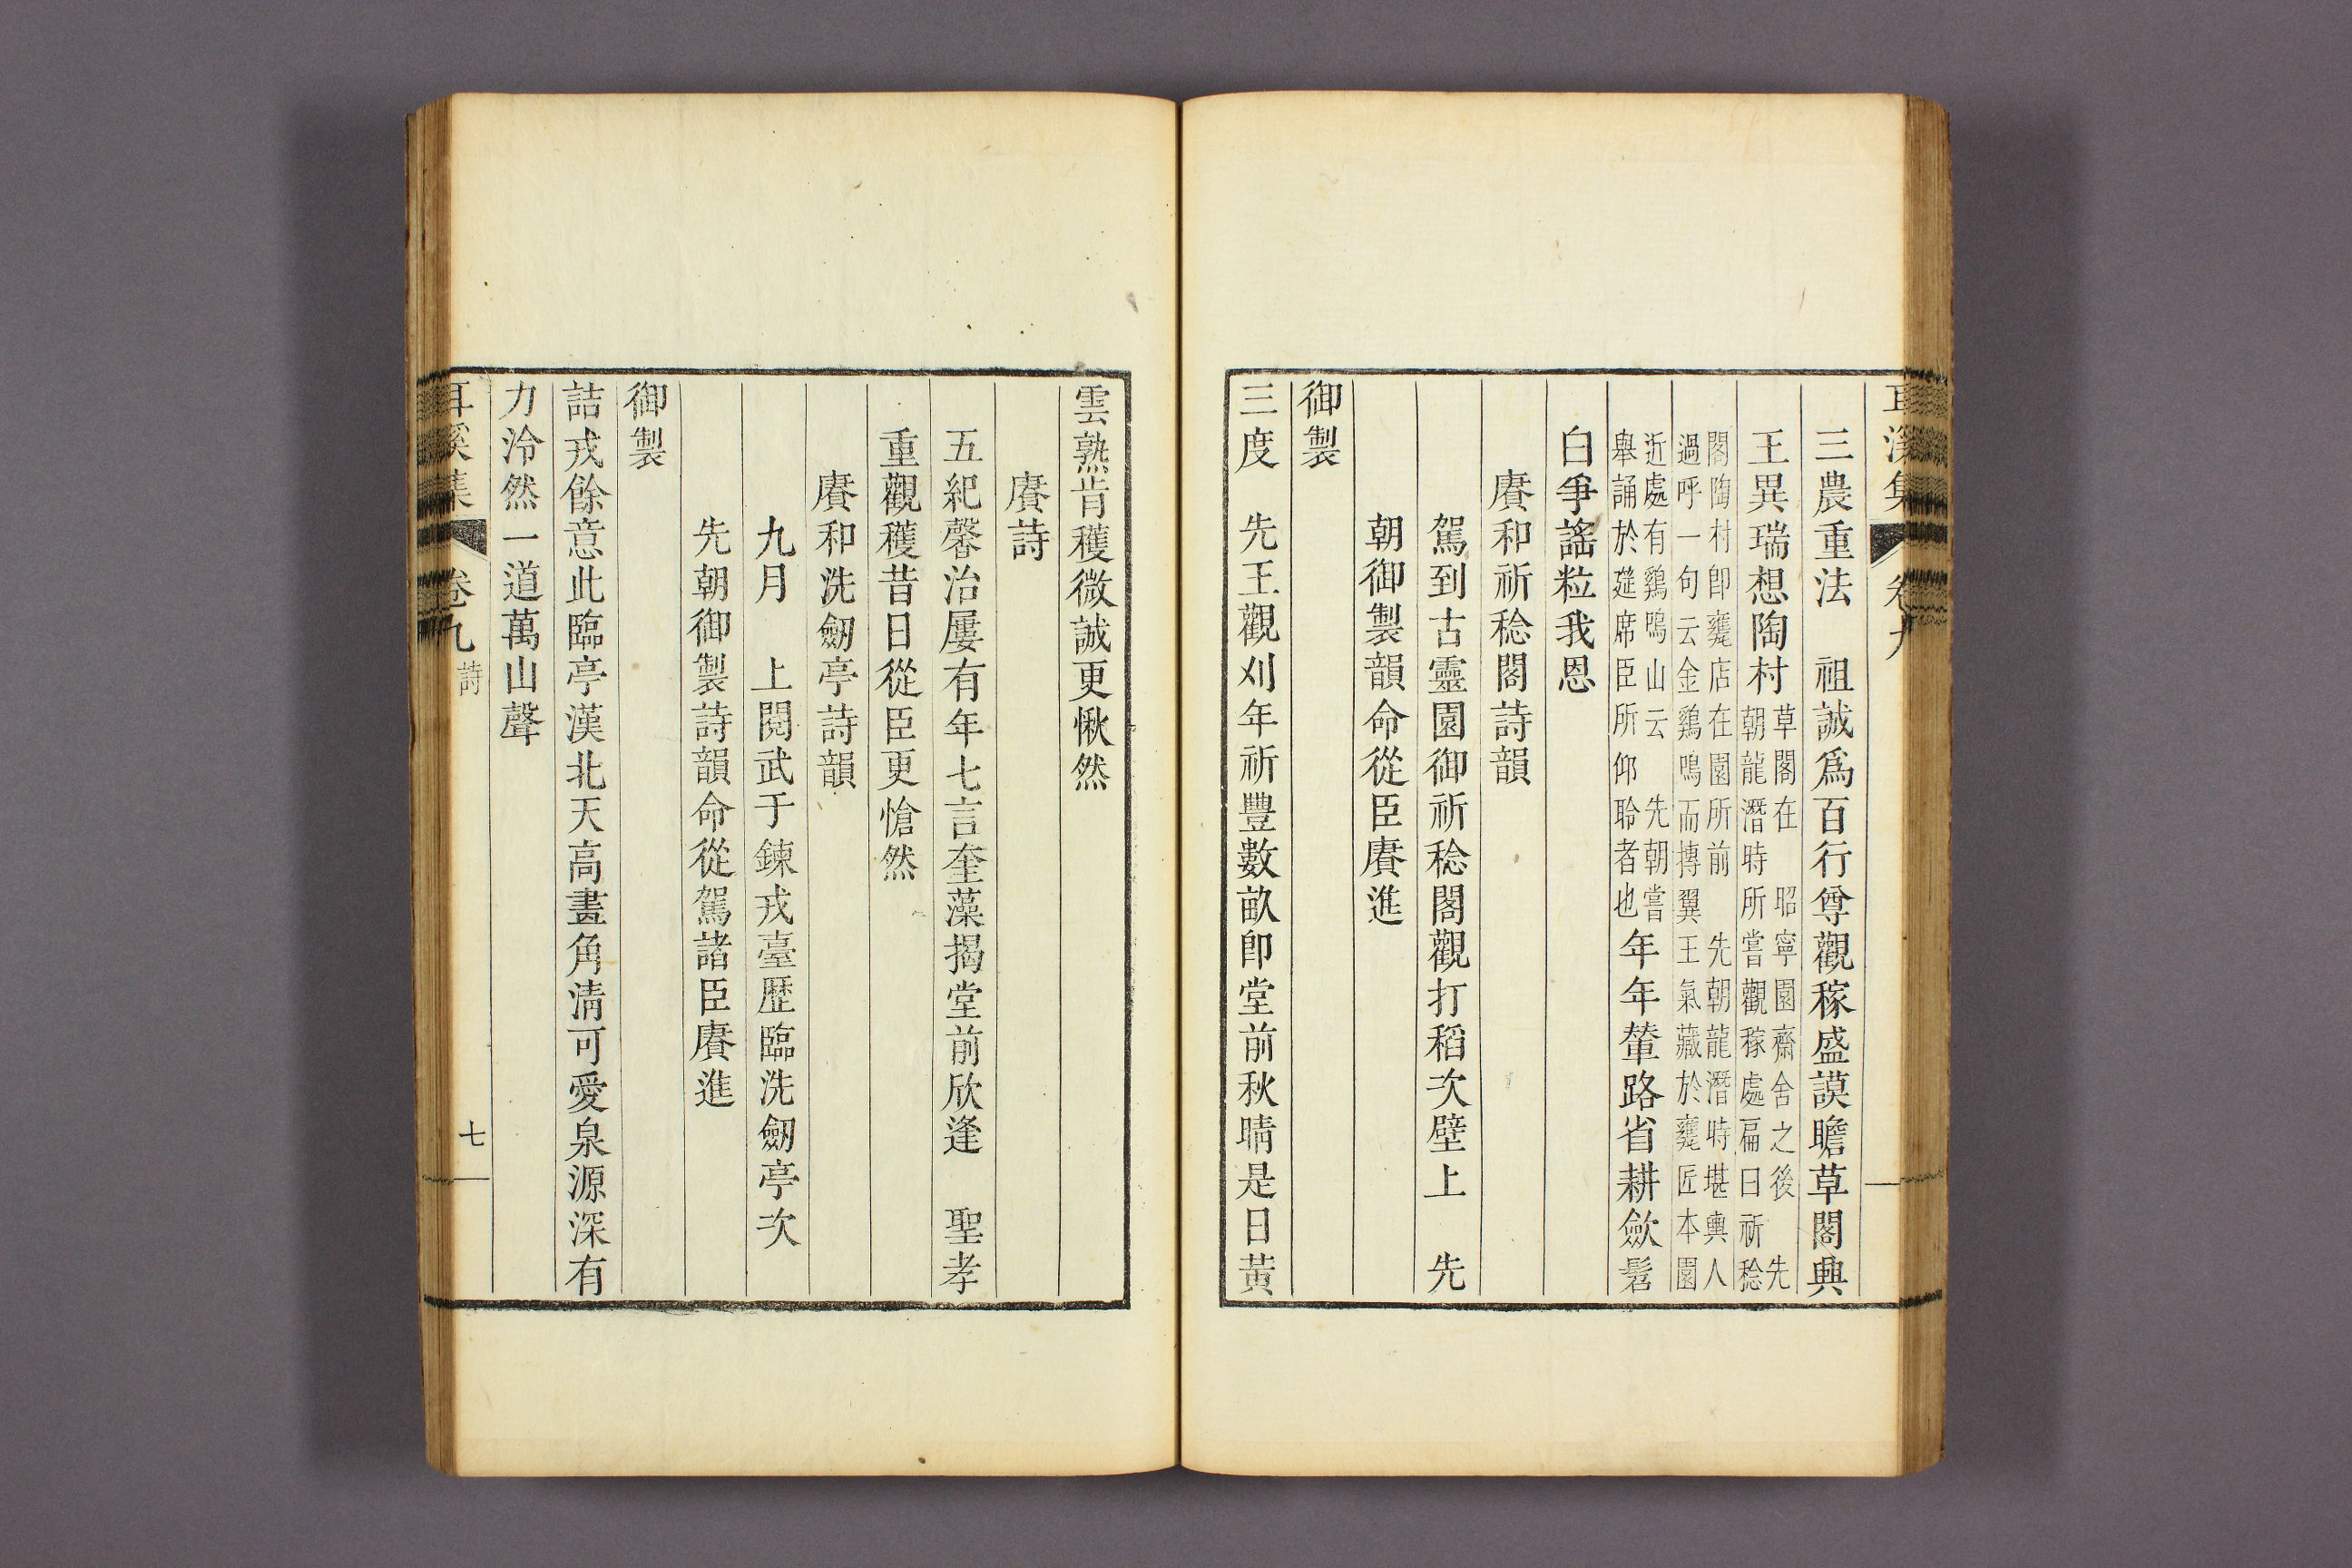 耳溪集 卷九
三農重法 祖誠爲百行尊觀稼盛謨瞻草閣興
王異瑞想陶村草閣在 昭寧園齋舍之後 先朝龍潛時所嘗觀稼處扁曰祈稔
閣陶村卽甕店在園所前 先朝龍潛時堪輿人過呼一句云金鷄鳴而摶翼王氣藏於甕匠本園
近處有鷄鳴山云 先朝嘗擧誦於筵席臣所仰聆者也年年輦路省耕斂髫
白爭謠粒我恩
賡和祈稔閣詩韻
駕到古靈園御祈稔閣觀打稻次壁上 先
朝御製韻命從臣賡進
御製
三度 先王觀刈年祈豐數畝卽堂前秋晴是日黃
雲熟肯穫微誠更愀然
賡詩
五紀馨治屢有年七言奎藻揭堂前欣逢 聖孝
重觀穫昔日從臣更愴然
賡和洗劒亭詩韻
九月 上閱武于鍊戎臺歷臨洗劒亭次
先朝御製詩韻命從駕諸臣賡進
御製
詰戎餘意此臨亭漢北天高畫角淸可愛泉源深有
力泠然一道萬山聲
耳溪集 卷九 詩 七